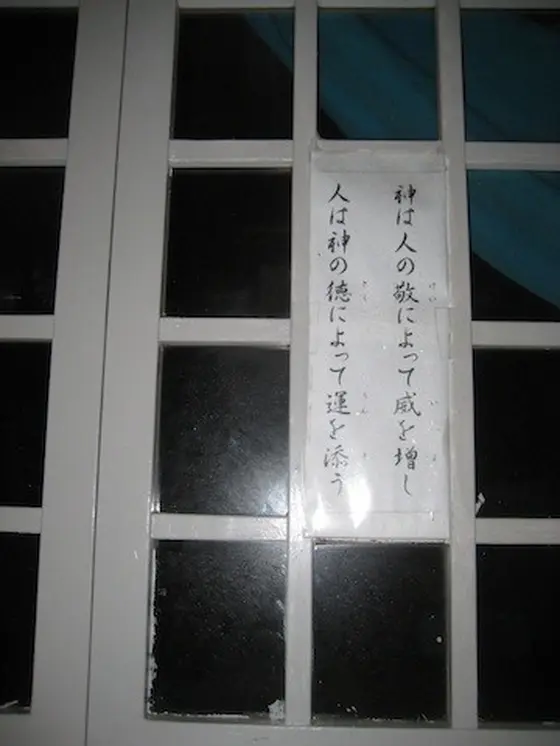 神は人の敬によって威を増し
人は神の徳によって運を添う